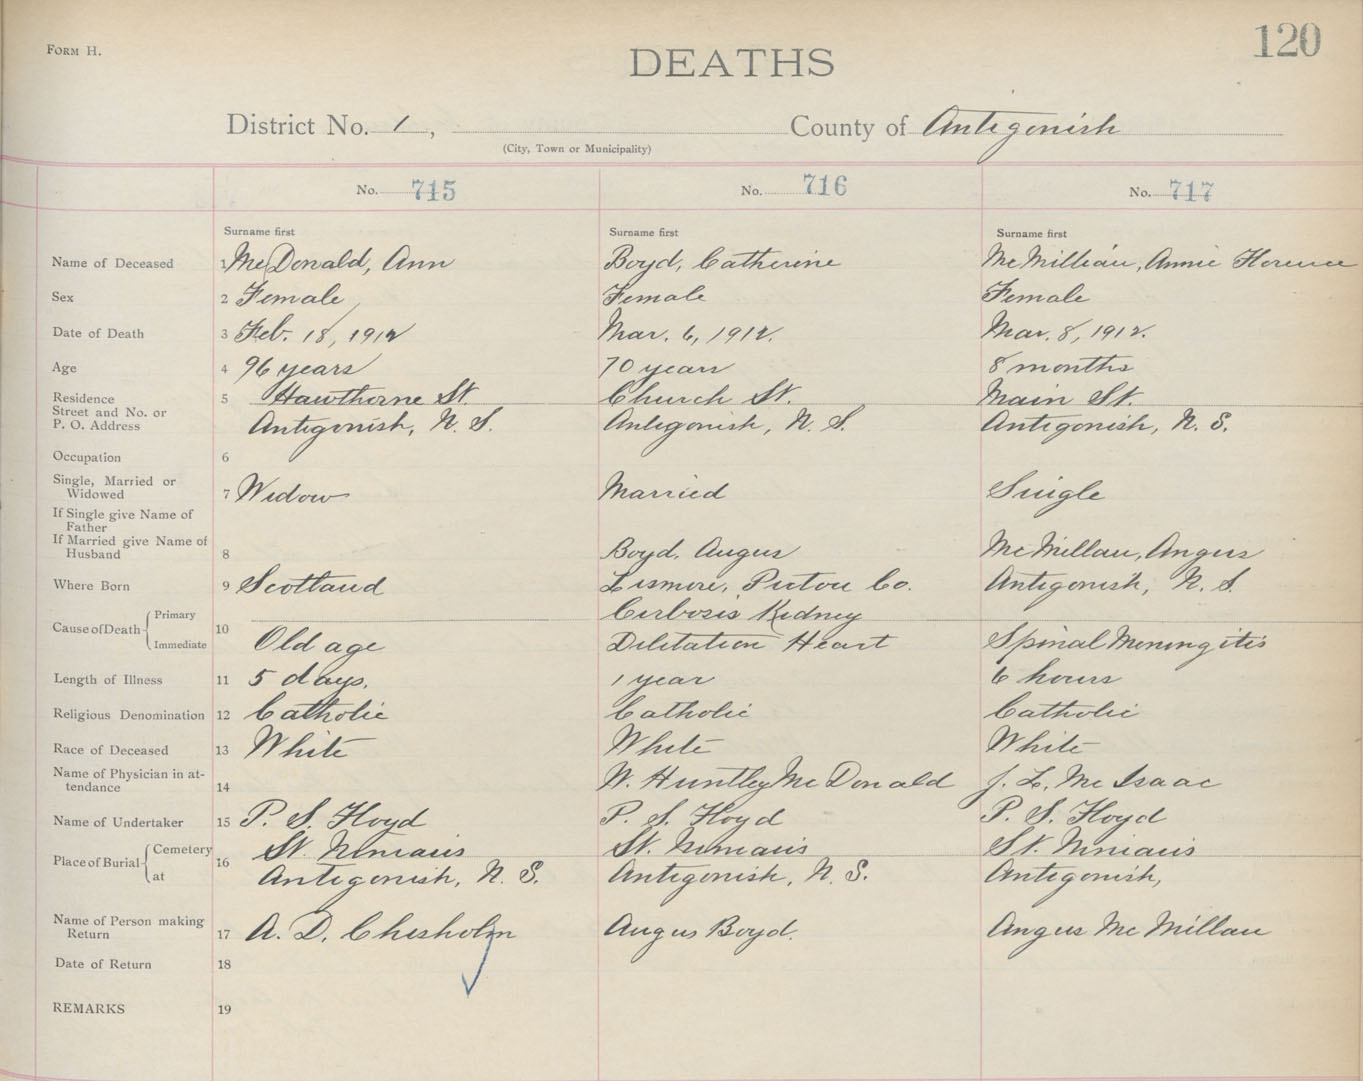 FORM H.
120
DEATHS
District No. 1,
County of Antigonish
(City, Town or Municipality)
No. 715
No. 716
No. 717
Surname first
Surname first
Surname first
Name of Deceased 1 McDonald, Ann
Boyd, Catherine
McMillan, Annie Florence
Sex 2 Female
Female
Female
Date of Death 3 Feb. 18, 1912
Mar. 6, 1912.
Mar. 8, 1912.
Age 4 96 years
70 years
8 months
Residence 5 Hawthorne St.
Church St.
Main St.
Street and No. or
P. O. Address
Antigonish, N. S.
Antigonish, N. S.
Antigonish, N. S.
Occupation 6
Single, Married or
Widowed 7 Widow
Married
Single
If Single give Name of
Father
If Married give Name of
Husband 8
Boyd, Angus
McMillan, Angus
Where Born 9 Scotland
Lismore, Pictou Co.
Antigonish, N. S.
Cause of Death Primary
Immediate 10
Cirbosis Kidney
Old age
Dilitation Heart
Spinal Meningitis
Length of Illness 11 5 days.
1 year
6 hours
Religious Denomination 12 Catholic
Catholic
Catholic
Race of Deceased 13 White
White
White
Name of Physician in at-
tendance 14
W. Huntley McDonald
J. L. McIsaac
Name of Undertaker 15 P. S. Floyd
P. S. Floyd
P. S. Floyd
Place of Burial Cemetery
at 16
St. Ninians
St. Ninians
St. Ninians
Antigonish, N. S.
Antigonish, N. S.
Antigonish,
Name of Person making
Return 17 A. D. Chisholm
Angus Boyd.
Angus McMillan
Date of Return 18
REMARKS 19